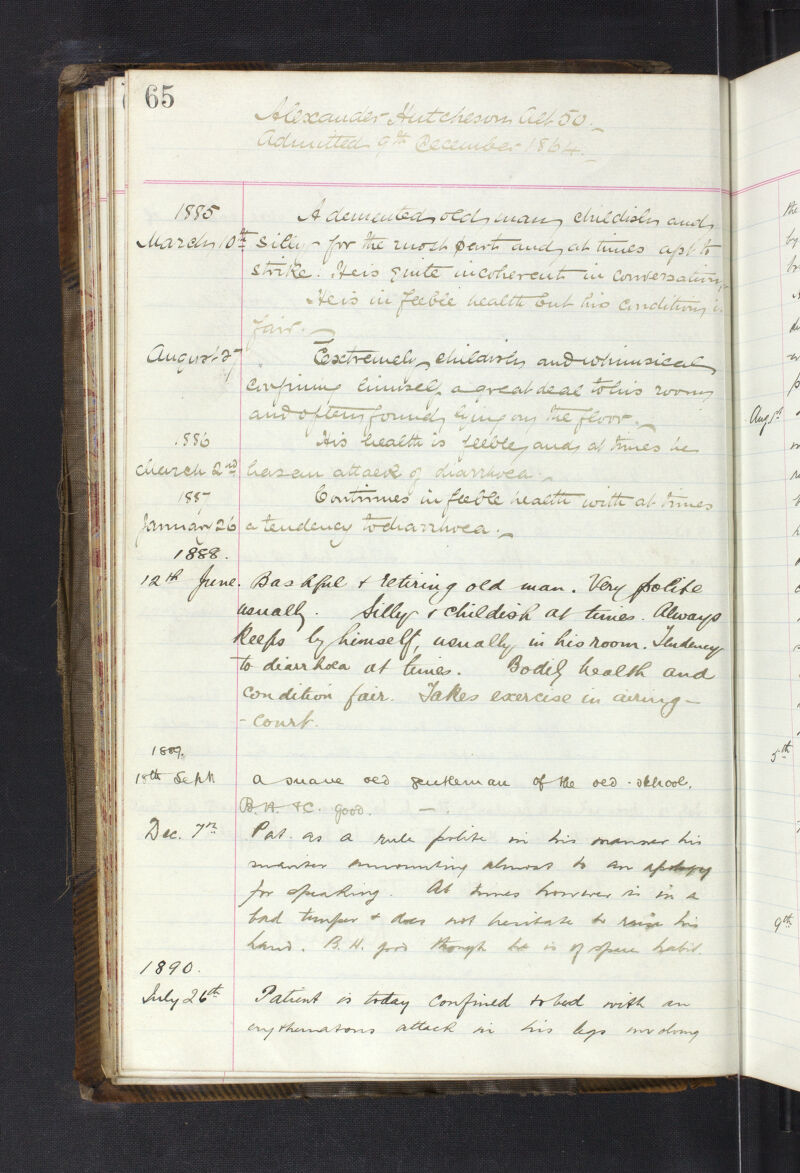 65
Alexander Hutcheson Aet 50.
Admitted 9th December 1864.
1885 A demented old man, childish and
March 10th silly - for the most part and, at times apt to
strike. He is quite incoherent in conversation,
He is in feeble health but his condition is
fair.
August 2 Extremely childish and whimsical
confining himself a great deal to his room,
and often found lying on the floor.
1886 His health is feeble, and at times he
March 2nd has an attack of diarrhoea.
1887 Continues in feeble health with at times
January 26 a tendency to diarrhoea.
1888.
12th June. Bashful & retiring old man. Very polite
usually. Silly & childish at times. Always
keeps by himself, usually in his room. Tendency
to diarrhoea at times. Bodily health and
condition fair. Takes exercise in airing-
-court.
1889.
18th Sept a suave old gentleman of the old-school.
B.H. & C. good. —.
Dec. 7th Pat. as a rule polite in his manner his
manner amounting almost to an apology
for speaking. At times however is in a
bad temper & does not hesitate to raise his
hand. B.H. good though he is of spare habit.
1890.
July 26th Patient is today confined to bed with an
erythematous attack in his legs involving
the
by
Aug 1st
5th
9th